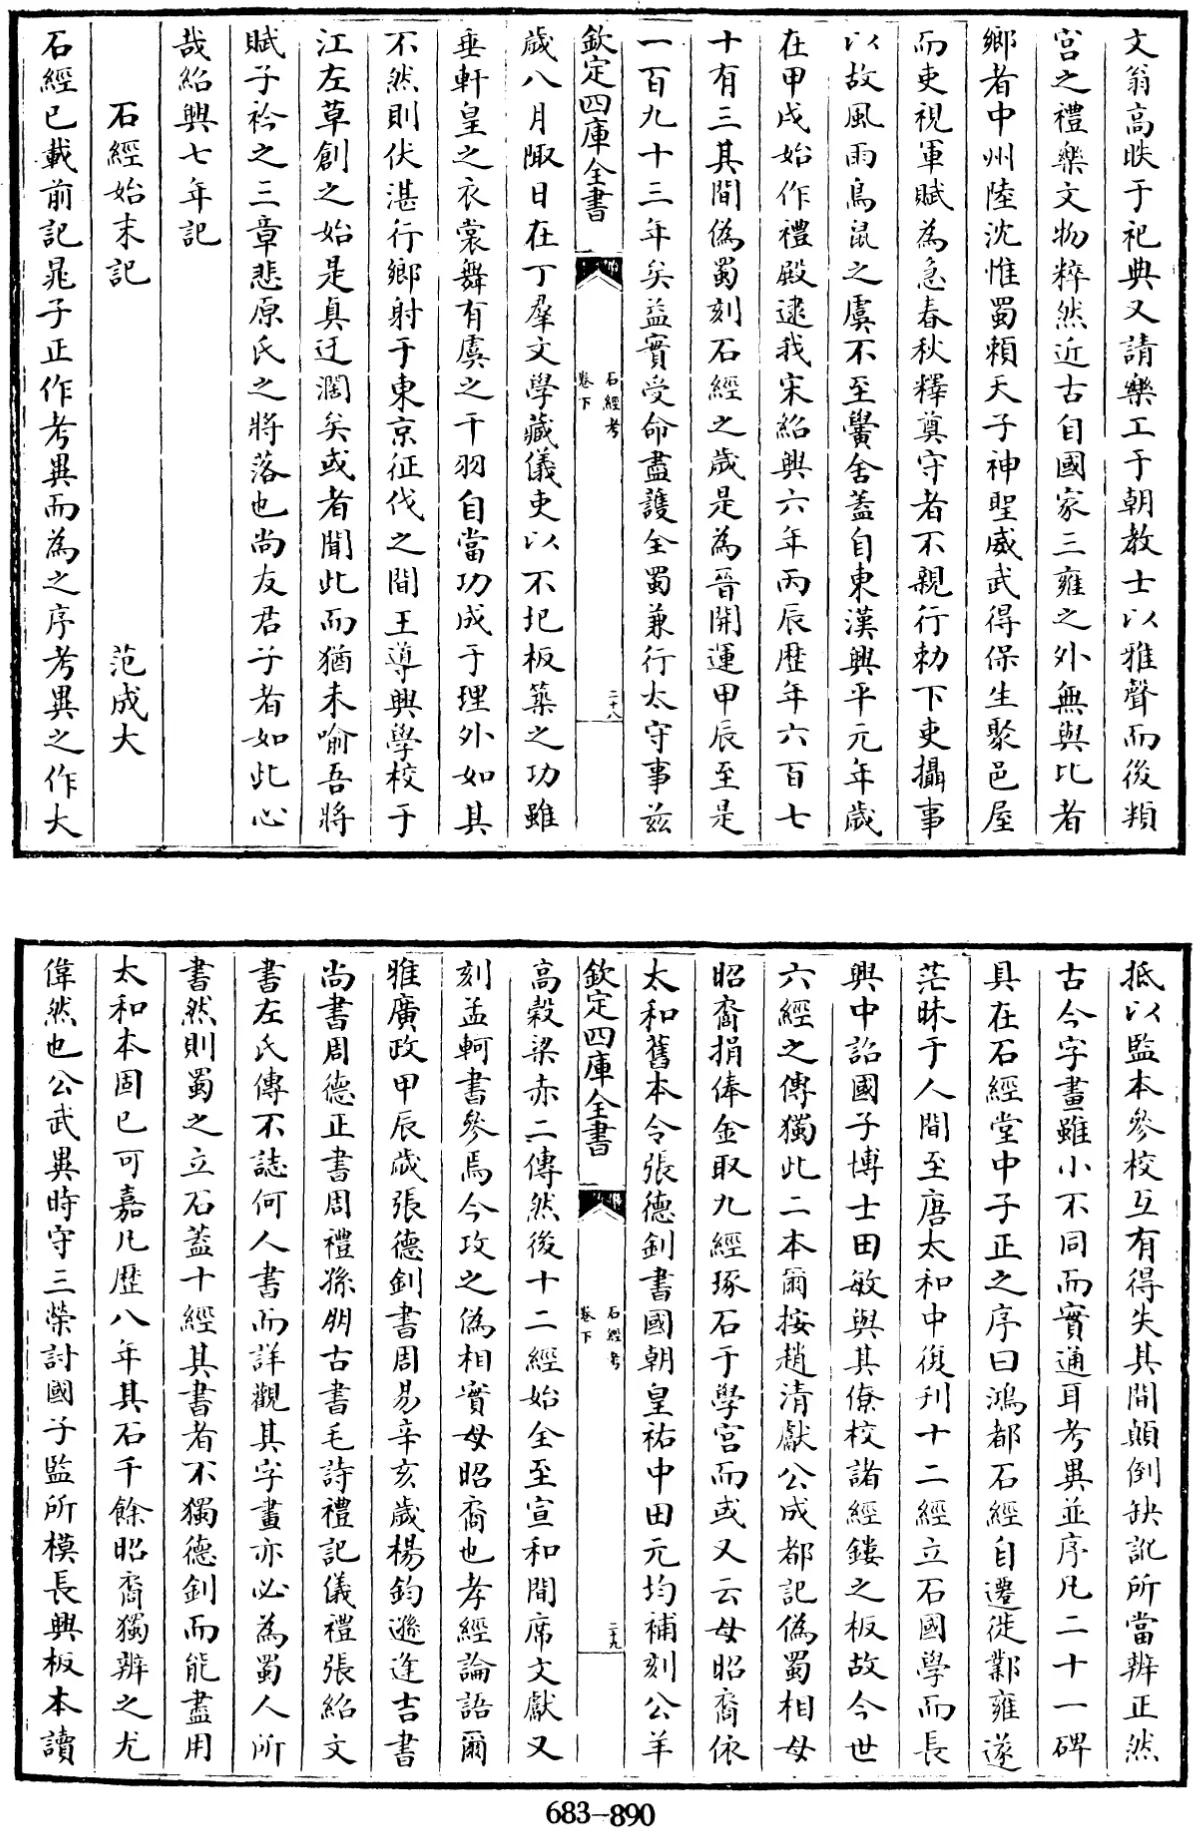 文翁高昳于祀典又請樂工于朝教士以雅聲而後類
宮之禮樂文物粹然近古自國家三雍之外無與比者
鄉者中州陸沈惟蜀賴天子神聖威武得保生聚邑屋
而吏視軍賦為急春秋釋奠守者不親行勅下吏攝事
以故風雨鳥鼠之虞不至黌舍蓋自東漢興平元年歲
在甲戌始作禮殿逮我宋紹興六年丙辰歴年六百七
十有三其間偽蜀刻石經之歲是為晉開運甲辰至是
一百九十三年矣益實受命盡護全蜀兼行太守事兹
欽定四庫全書
石經考
卷下
二十八
歲八月陬日在丁羣文學藏儀吏以不圯板築之功雖
垂軒皇之衣裳舞有虞之干羽自當功成于理外如其
不然則伏湛行鄉射于東京征伐之間王導興學校于
江左草創之始是真迂濶矣或者聞此而猶未喻吾將
賦子衿之三章悲原氏之將落也尚友君子者如此心
哉紹興七年記
石經始末記
范成大
石經已載前記晁子正作考異而為之序考異之作大
抵以監本參校互有得失其間顛倒缺訛所當辨正然
古今字畫雖小不同而實通耳考異並序凡二十一碑
具在石經堂中子正之序曰鴻都石經自遷徙鄴雍遂
茫昧于人間至唐太和中復刋十二經立石國學而長
興中詔國子博士田敏與其僚校諸經鏤之板故今世
六經之傳獨此二本爾按趙清獻公成都記偽蜀相毋
昭裔捐俸金取九經琢石于學宮而或又云毋昭裔依
太和舊本令張德釗書國朝皇祐中田元均補刻公羊
欽定四庫全書
石經考
卷下
二十九
高榖梁亦二傳然後十二經始全至宣和間席文獻又
刻孟軻書參焉今攷之偽相實毋昭裔也孝經論語爾
雅廣政甲辰歲張德釗書周易辛亥歲楊鈞遜逢吉書
尚書周德正書周禮孫朋古書毛詩禮記儀禮張紹文
書左氏傳不誌何人書而詳觀其字畫亦必為蜀人所
書然則蜀之立石蓋十經其書者不獨德釗而能盡用
太和本固已可嘉凡歴八年其石千餘昭裔獨辨之尤
偉然也公武異時守三榮討國子監所模長興板本讀
683-890